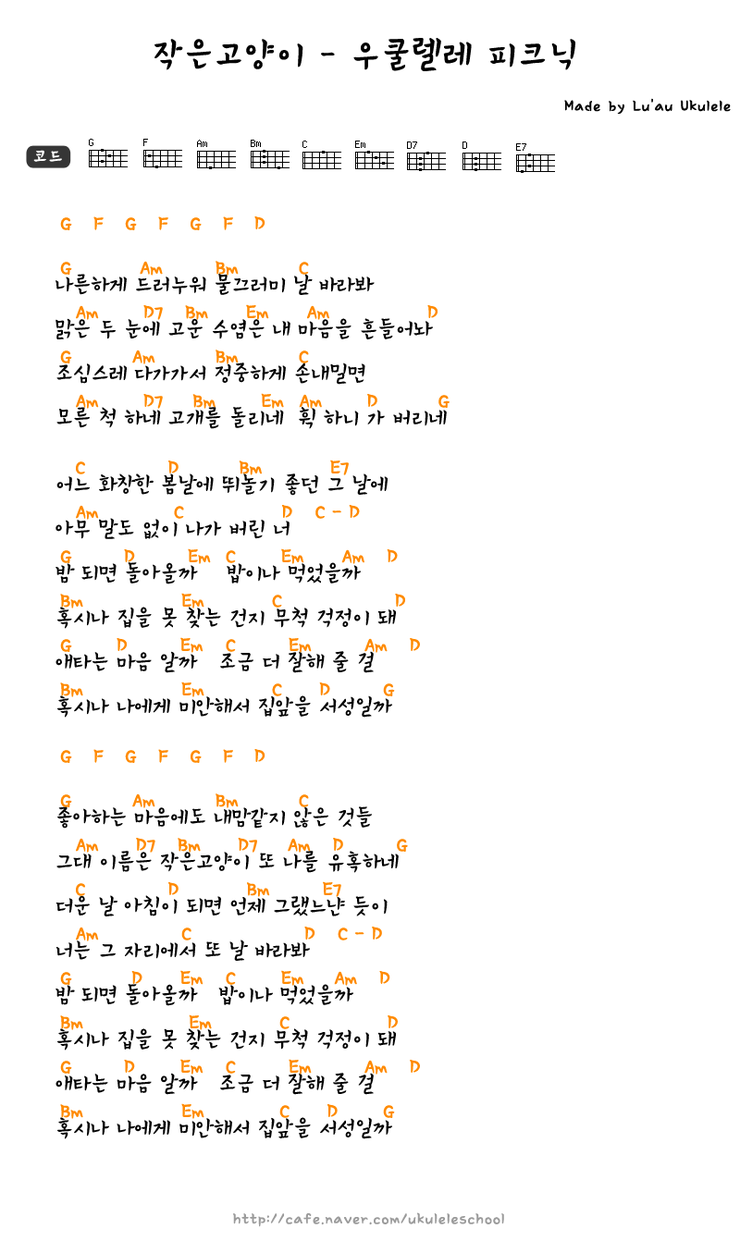 작은고양이 - 우쿨렐레 피크닉
Made by Lu'au Ukulele
코드 G F Am Bm C Em D7 D E7
G F G F G F D
G Am Bm C
나른하게 드러누워 물끄러미 날 바라봐
Am D7 Bm Em Am D
맑은 두 눈에 고운 수염은 내 마음을 흔들어놔
G Am Bm C
조심스레 다가가서 정중하게 손내밀면
Am D7 Bm Em Am D G
모른 척 하네 고개를 돌리네 휙 하니 가 버리네
C D Bm E7
어느 화창한 봄날에 뛰놀기 좋던 그 날에
Am C D C - D
아무 말도 없이 나가 버린 너
G D Em C Em Am D
밤 되면 돌아올까 밥이나 먹었을까
Bm Em C D
혹시나 집을 못 찾는 건지 무척 걱정이 돼
G D Em C Em Am D
애타는 마음 알까 조금 더 잘해 줄 걸
Bm Em C D G
혹시나 나에게 미안해서 집앞을 서성일까
G F G F G F D
G Am Bm C
좋아하는 마음에도 내맘같지 않은 것들
Am D7 Bm D7 Am D G
그대 이름은 작은고양이 또 나를 유혹하네
C D Bm E7
더운 날 아침이 되면 언제 그랬느냔 듯이
Am C D C - D
너는 그 자리에서 또 날 바라봐
G D Em C Em Am D
밤 되면 돌아올까 밥이나 먹었을까
Bm Em C D
혹시나 집을 못 찾는 건지 무척 걱정이 돼
G D Em C Em Am D
애타는 마음 알까 조금 더 잘해 줄 걸
Bm Em C D G
혹시나 나에게 미안해서 집앞을 서성일까
http://cafe.naver.com/ukuleleschool